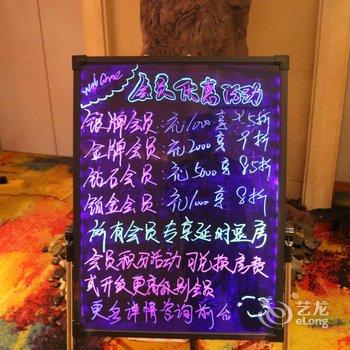 Welcome
会员优惠活动
银牌会员:充1000享9.5折
金牌会员:充2000享9折
钻石会员:充5000享8.5折
铂金会员:充1000享8折
所有会员专享延时退房
会员积分活动可兑换房费
或升级更高级别会员
更多详情咨询前台
艺龙
eLong